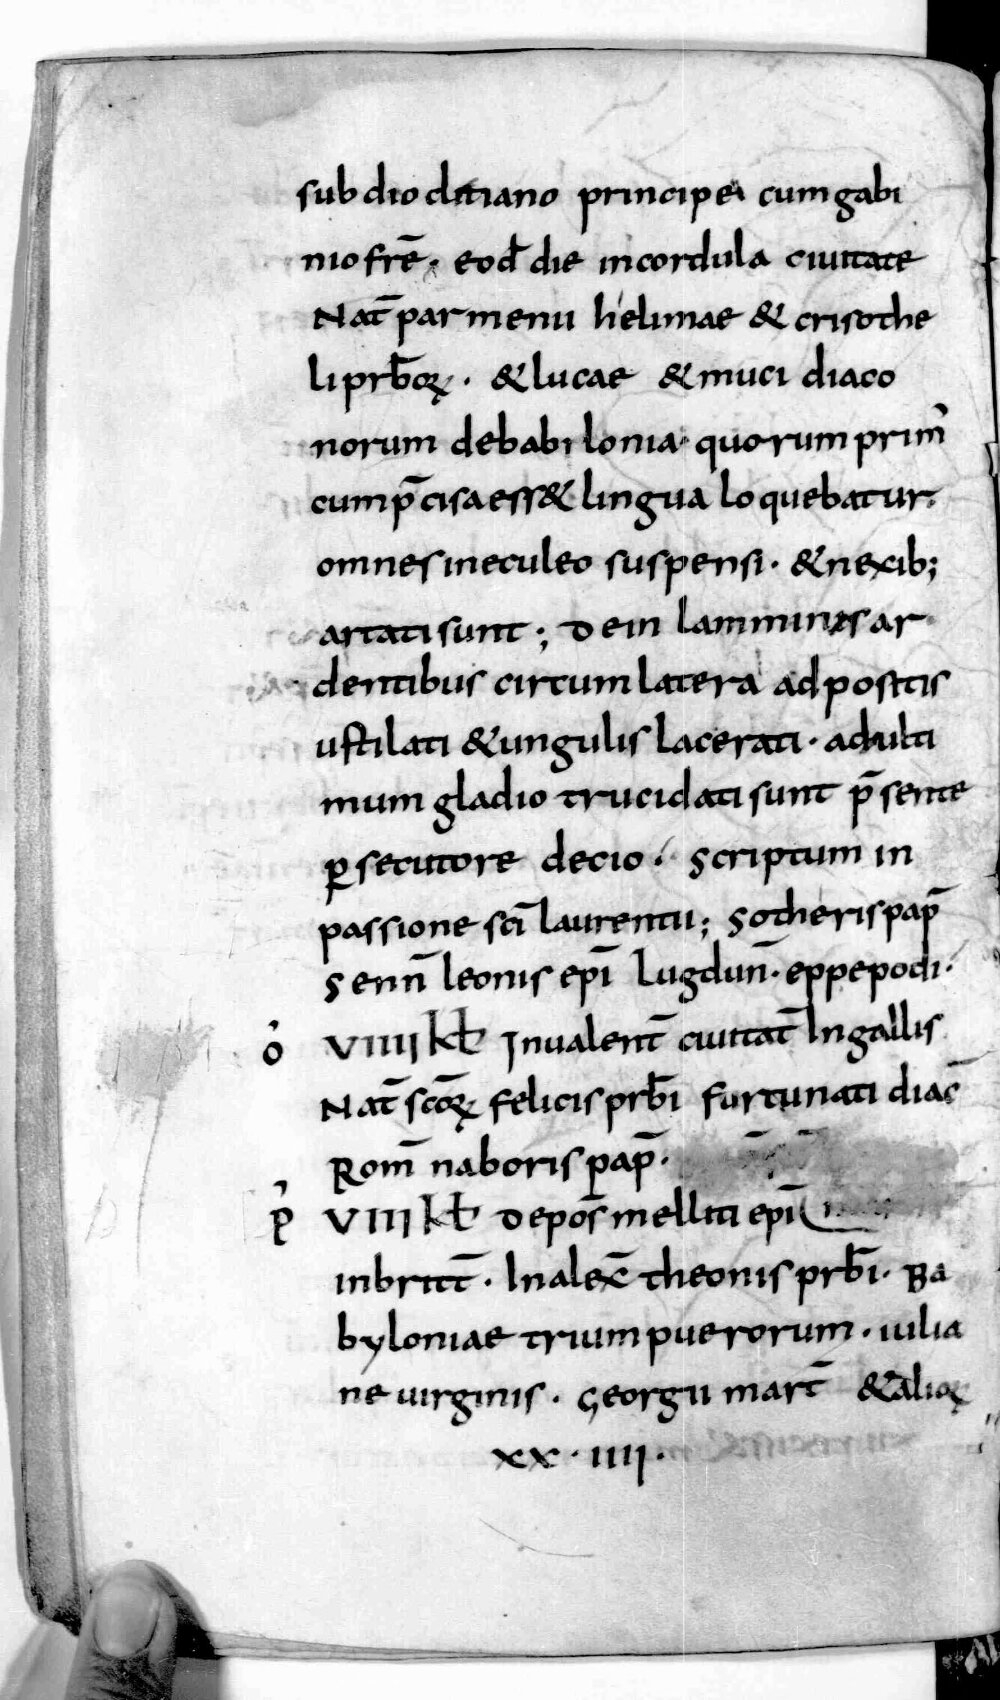 sub dioclitiano principe cum gabi
nio frē. eod̄ die in cordula ciuitate
Nat̄ parmenii helimae & crisothe
li prb̄oꝝ. & lucae & muci diaco
norum de babilonia quorum prim̓
cum p̄cisa ess& lingua loquebatur.
omnes in eculeo suspensi. & nexib;
artati sunt; Dein lamminis ar
dentibus circum latera adpositis
ustilati & ungulis lacerati. ad ulti
mum gladio trucidati sunt p̄sente
ꝑsecutore decio. Scriptum in
passione sc̄i laurentii; Sotheris pap̄
Senn̄ leonis ep̄i lugdun̄. eppepodi.
o᷒ VIIII kƚ In ualent̄ ciuitat̄ In gallis
Nat̄ sc̄oꝝ felicis prb̄i furtunati diac̄
Rom̄ naboris pap̄.
p᷒ VIII kƚ Depos̄ melliti ep̄i
in britt̄. In alex̄ theonis prb̄i. Ba
byloniae trium puerorum. iulia
ne uirginis. Georgii mart̄ & alioꝝ
xx. iiii.